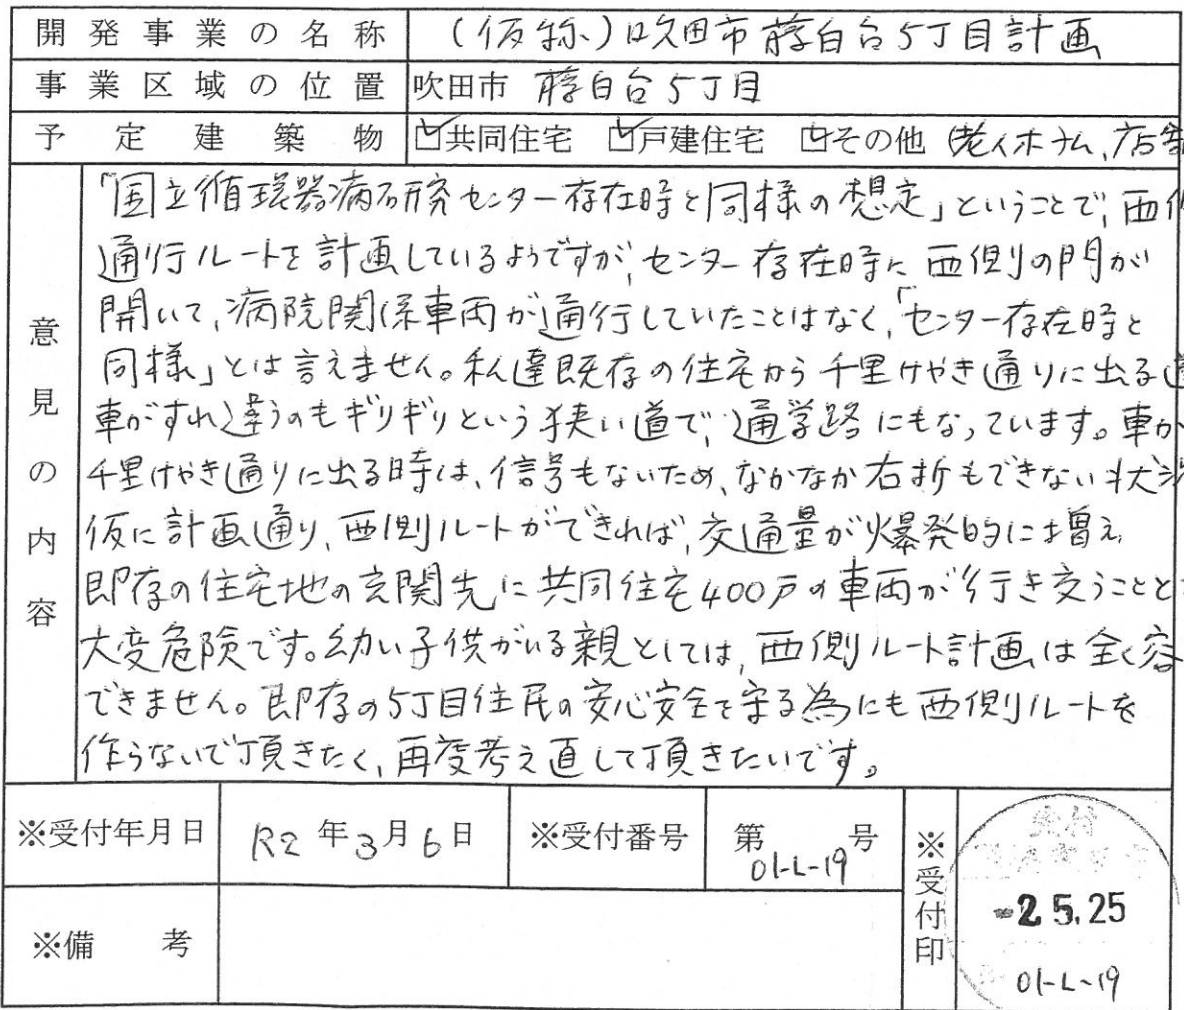 開発事業の名称 (仮称)吹田市藤白台5丁目計画
事業区域の位置 吹田市 藤白台5丁目
予定建築物 ☑共同住宅 ☑戸建住宅 ☑その他 (老人ホーム、店舗
意見の内容
「国立循環器病研究センター存在時と同様の想定」ということで、西側
通行ルートを計画しているようですが、センター存在時に西側の門が
開いて、病院関係車両が通行していたことはなく、「センター存在時と
同様」とは言えません。私達既存の住宅から千里けやき通りに出る道
車がすれ違うのもギリギリという狭い道で、通学路にもなっています。車が
千里けやき通りに出る時は、信号もないため、なかなか右折もできない状況
仮に計画通り、西側ルートができれば、交通量が爆発的には増え、
即存の住宅地の玄関先に共同住宅400戸の車両が行き交うことと
大変危険です。幼い子供がいる親としては、西側ルート計画は全く容
できません。即存の5丁目住民の安心安全を守る為にも西側ルートを
作らないで頂きたく、再度考え直して頂きたいです。
※受付年月日 R2年3月6日 ※受付番号 第 01-L-19 号
※備考
※受付印
受付
-2.5.25
01-L-19